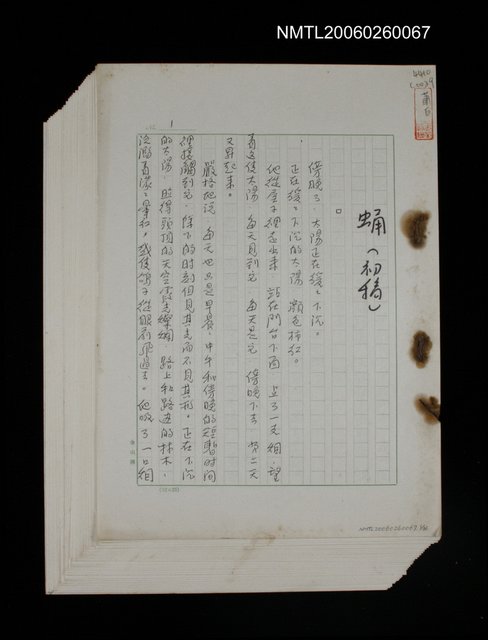 NMTL20060260067
蛹（初稿）
傍晚了，太陽正在緩緩下沉。
正在緩緩下沉的太陽，顏色橘紅。
他從屋子裡走出來，站在門台下面，點了一支烟，望
著這個太陽，每天見到它，每天是它，傍晚下去，第二天
又昇起來。
嚴格地說，每天也只是早晨、中午和傍晚的短暫時間
裡接觸到它，除下的時刻但見其光而不見其形。正在下沉
的太陽，照得頭頂的天空 路上和路邊的林木，
泛濫著濛濛暈紅，
他吸了一口烟
1
NMTL20060260067